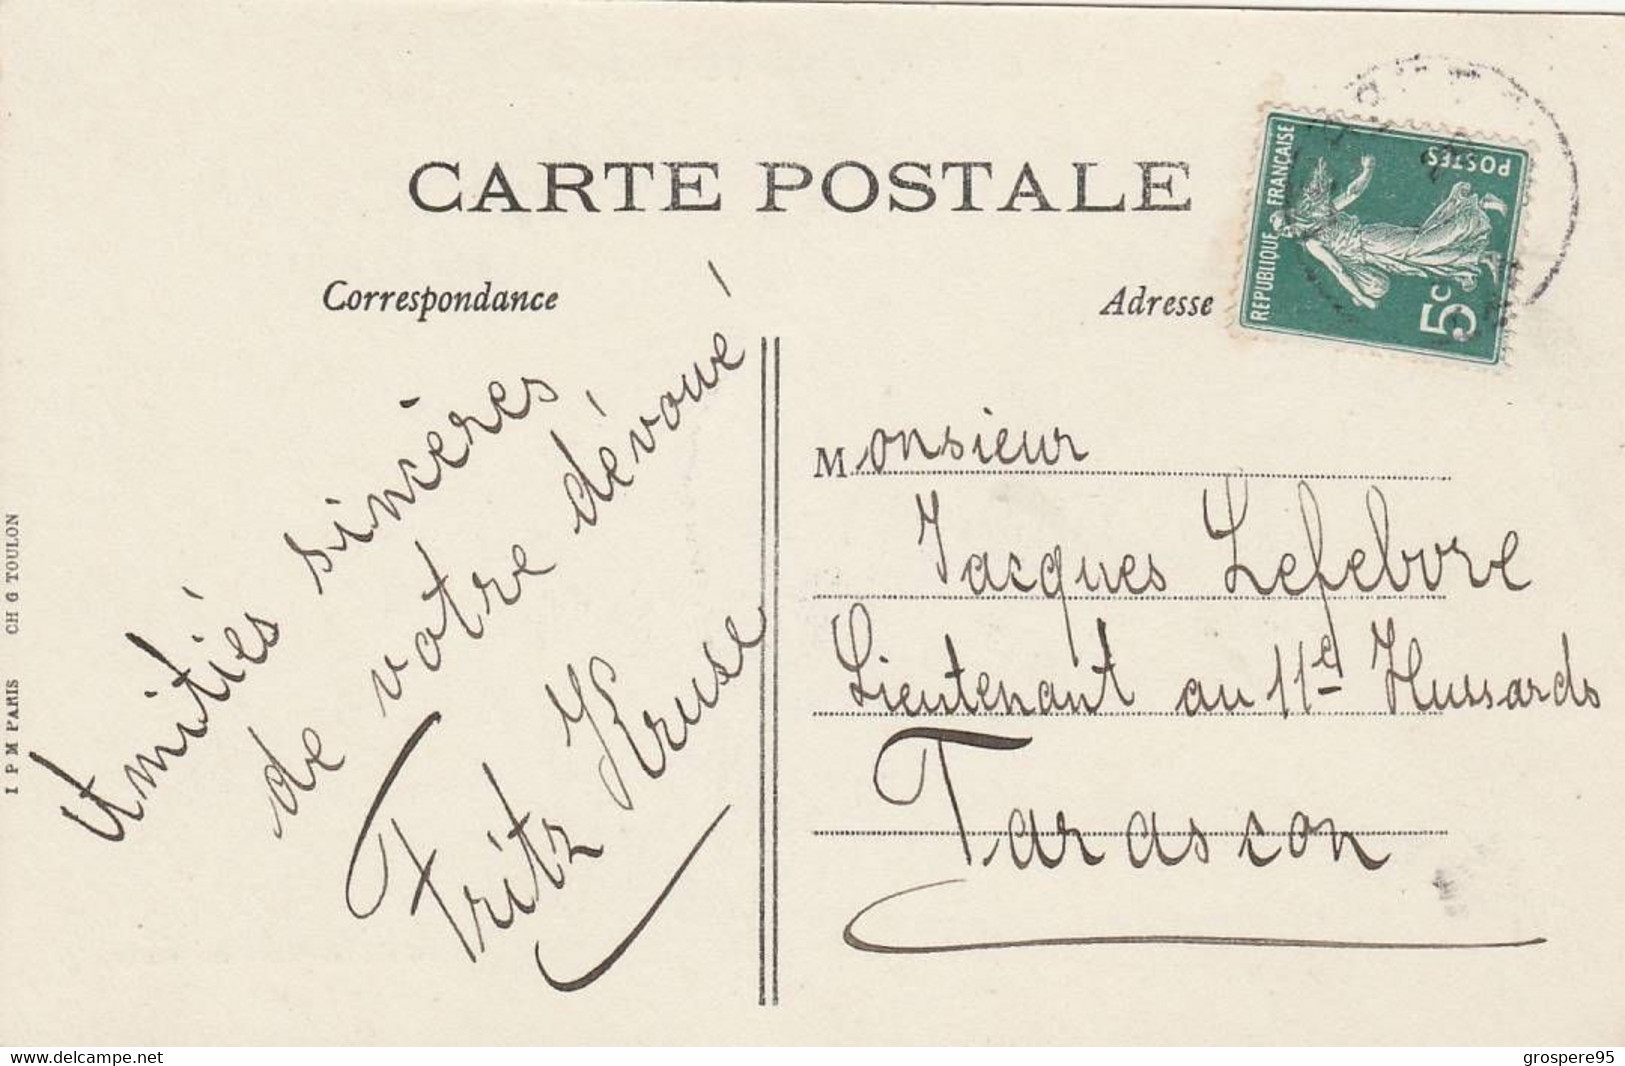 CARTE POSTALE
Correspondance
Adresse
REPUBLIQUE FRANÇAISE
POSTES
5c
Amitiés sincères
de votre dévoué
Fritz Kruse
Monsieur
Jacques Lefebvre
Lieutenant au 11e Hussards
Tarascon
I P M PARIS CH G TOULON
www.delcampe.net
grospere95